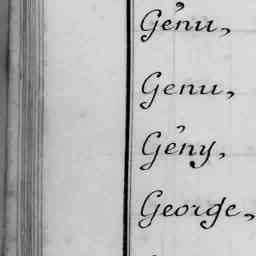 Génu,
Genu,
Gény,
George,